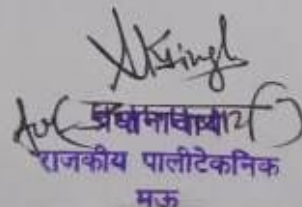 SKSingh
प्रधानाचार्य
राजकीय पालीटेकनिक
मऊ